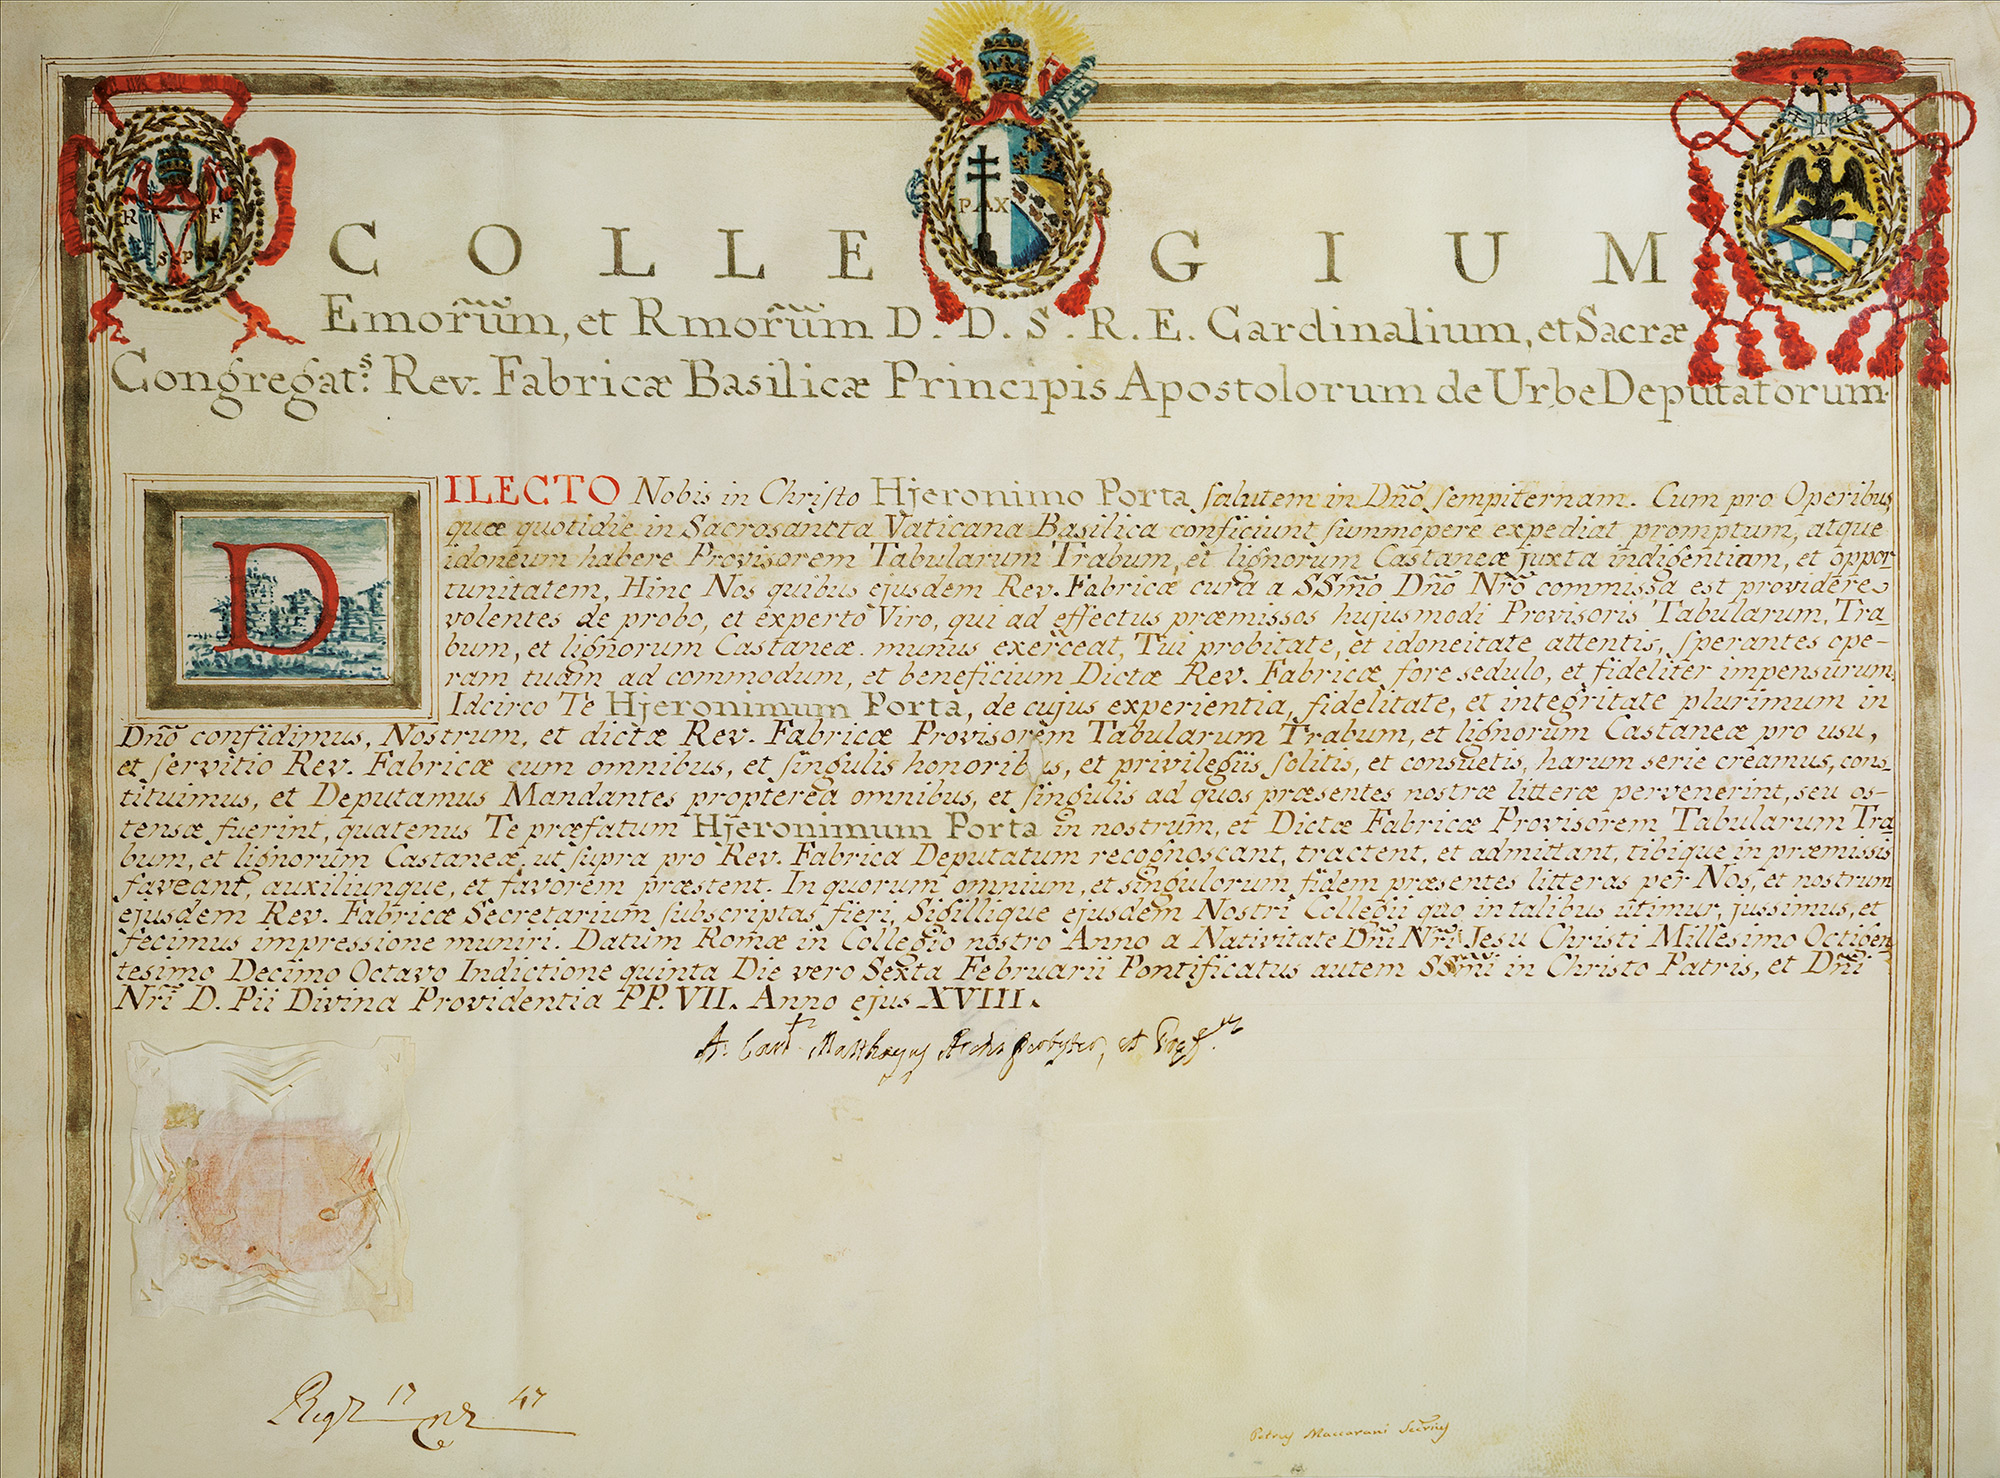 R F
S P
PAX
COLLEGIUM
Emor̃ũm, et Rmor̃ũm D. D. S. R. E. Cardinalium, et Sacræ
Congregat.s Rev. Fabricæ Basilicæ Principis Apostolorum de Urbe Deputatorum.
DILECTO Nobis in Christo Hjeronimo Porta salutem in Dño sempiternam. Cum pro Operibus
quæ quotidie in Sacrosancta Vaticana Basilica conficiunt summopere expediat promptum, atque
idoneum habere Provisorem Tabularum Trabum, et lignorum Castaneæ juxta indigentiam, et oppor-
tunitatem, Hinc Nos quibus ejusdem Rev. Fabricæ cura a SSm̃o Dño Nr̃o commissa est providere
volentes de probo, et experto Viro, qui ad effectus præmissos hujusmodi Provisoris Tabularum, Tra
bum, et lignorum Castaneæ. munus exerceat, Tui probitate, et idoneitate attentis, sperantes ope-
ram tuam ad commodum, et beneficium Dictæ Rev. Fabricæ fore sedulo, et fideliter impensurum,
Idcirco Te Hjeronimum Porta, de cujus experientia, fidelitate, et integritate plurimum in
Dño confidimus, Nostrum, et dictæ Rev. Fabricæ Provisorem Tabularum Trabum, et lignorum Castaneæ pro usu,
et servitio Rev. Fabricæ cum omnibus, et singulis honoribus, et privilegiis solitis, et consuetis, harum serie creamus, cons-
tituimus, et Deputamus Mandantes propterea omnibus, et singulis ad quos præsentes nostræ litteræ pervenerint, seu os-
tensæ fuerint, quatenus Te præfatum Hjeronimum Porta in nostrum, et Dictæ Fabricæ Provisorem Tabularum Tra-
bum, et lignorum Castaneæ, ut supra pro Rev. Fabrica Deputatum recognoscant, tractent, et admittant, tibique in præmissis
faveant, auxiliunque, et favorem præstent. In quorum omnium, et singulorum fidem præsentes litteras per Nos, et nostrum
ejusdem Rev. Fabricæ Secretarium subscriptas fieri, Sigillique ejusdem Nostri Collegii quo in talibus utimur, jussimus, et
fecimus impressione muniri. Datum Romæ in Collegio nostro Anno a Nativitate Dñi Nr̃i Jesu Christi Millesimo Octigen
tesimo Decimo Octavo Indictione quinta Die vero Sexta Februarii Pontificatus autem SSm̃i in Christo Patris, et Dñi
Nr̃i D. Pii Divina Providentia PP. VII. Anno ejus XVIII.
A. Card. Matthæjus Archipresbyter, et Præf.us
17 47
Petrus Maccarani Secrius